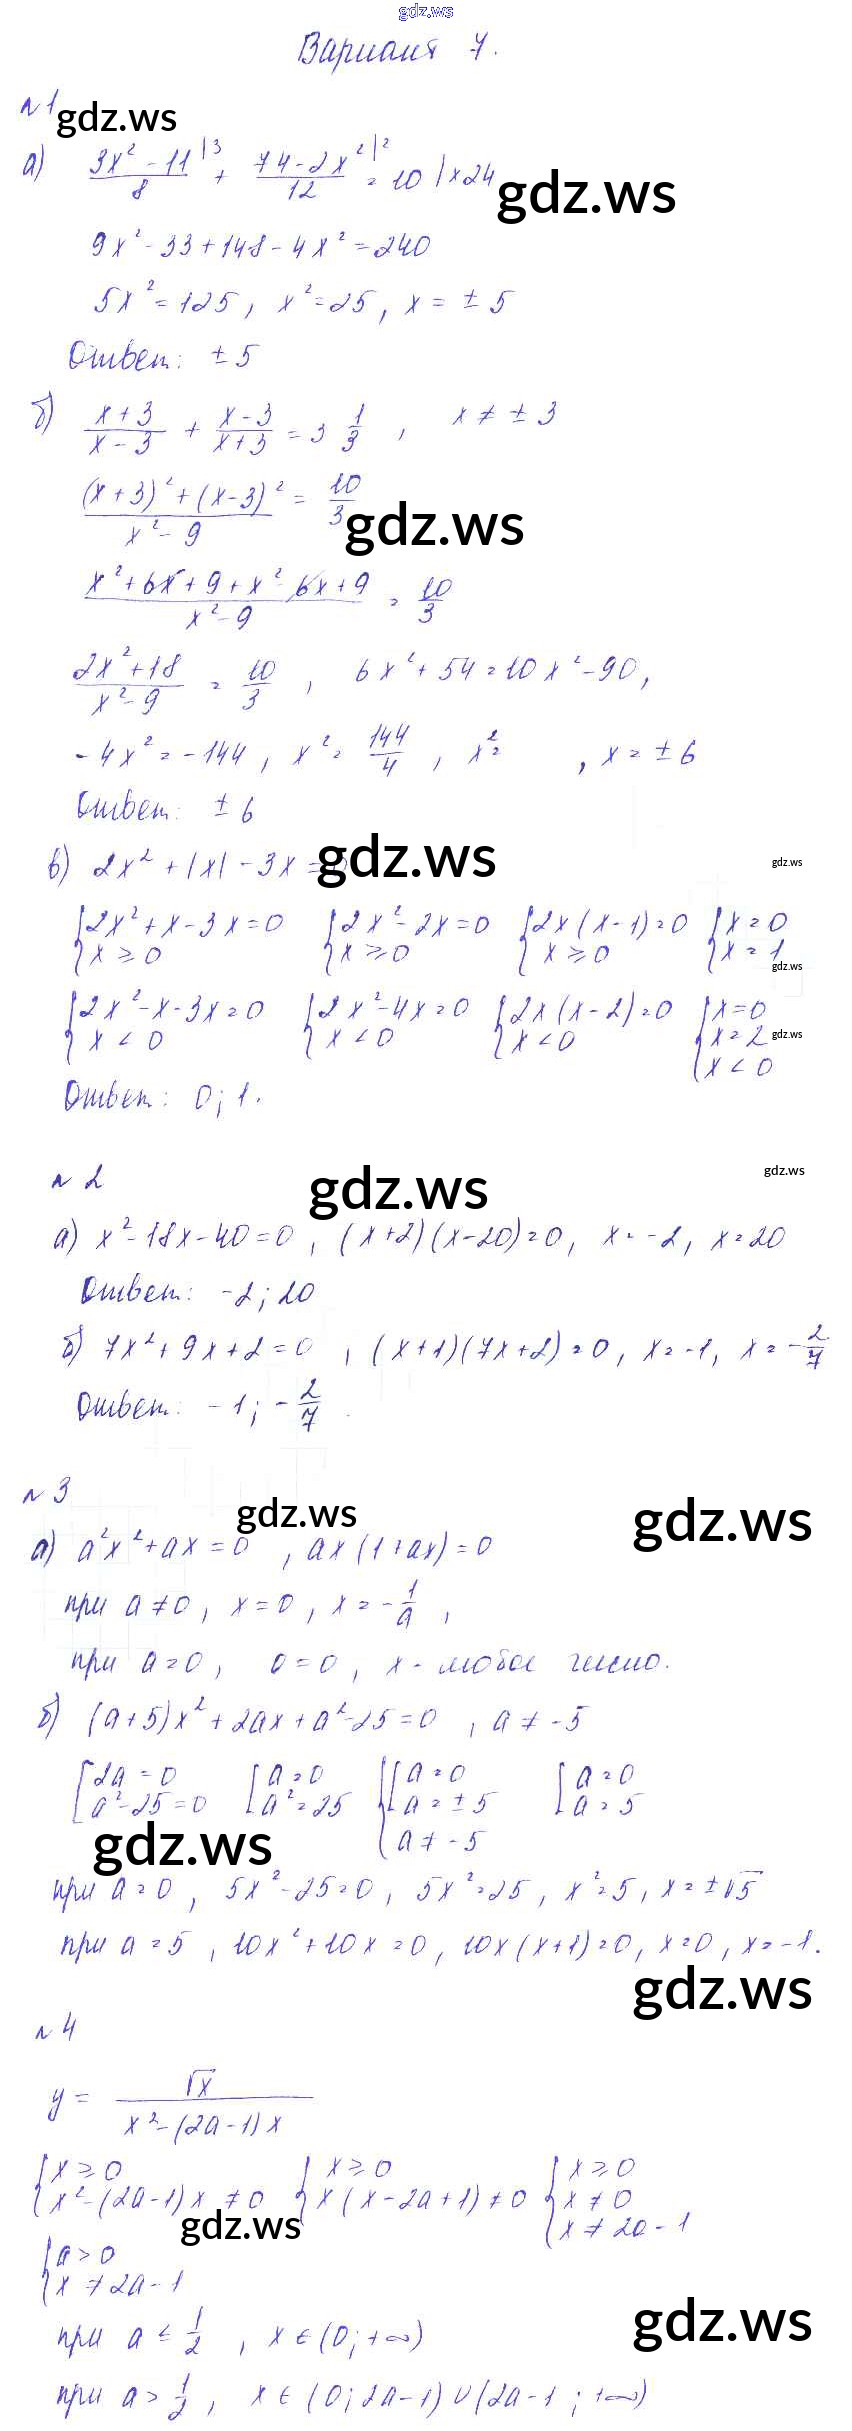 gdz.ws
Вариант 7.
№1
gdz.ws
а) (3x² - 11)/8 |3 + (74 - 2x²)/12 |2 = 10 | × 24
gdz.ws
9x² - 33 + 148 - 4x² = 240
5x² = 125, x² = 25, x = ± 5
Ответ: ± 5
б) (x + 3)/(x - 3) + (x - 3)/(x + 3) = 3 1/3, x ≠ ± 3
((x + 3)² + (x - 3)²)/(x² - 9) = 10/3
gdz.ws
(x² + 6x + 9 + x² - 6x + 9)/(x² - 9) = 10/3
(2x² + 18)/(x² - 9) = 10/3, 6x² + 54 = 10x² - 90,
- 4x² = - 144, x² = 144/4, x² = , x = ± 6
Ответ: ± 6
gdz.ws
в) 2x² + |x| - 3x = 0
gdz.ws
{2x² + x - 3x = 0 {2x² - 2x = 0 {2x (x - 1) = 0 {x = 0
x ≥ 0 x ≥ 0 x ≥ 0 x = 1
gdz.ws
{2x² - x - 3x = 0 {2x² - 4x = 0 {2x (x - 2) = 0 {x = 0
x < 0 x < 0 x < 0 x = 2
gdz.ws
x < 0
Ответ: 0; 1.
№ 2
gdz.ws
gdz.ws
а) x² - 18x - 40 = 0, (x + 2)(x - 20) = 0, x = - 2, x = 20
Ответ: - 2; 20
б) 7x² + 9x + 2 = 0, (x + 1)(7x + 2) = 0, x = - 1, x = - 2/7
Ответ: - 1; - 2/7.
№ 3
gdz.ws
gdz.ws
а) a²x² + ax = 0, ax (1 + ax) = 0
при a ≠ 0, x = 0, x = - 1/a,
при a = 0, 0 = 0, x - любое число.
б) (a + 5)x² + 2ax + a² - 25 = 0, a ≠ - 5
[2a = 0 [a = 0 {[a = 0 [a = 0
a² - 25 = 0 a² = 25 a = ± 5 a = 5
a ≠ - 5
gdz.ws
при a = 0, 5x² - 25 = 0, 5x² = 25, x² = 5, x = ± √5
при a = 5, 10x² + 10x = 0, 10x (x + 1) = 0, x = 0, x = - 1.
gdz.ws
№ 4
y = √x/(x² - (2a - 1)x)
{x ≥ 0 {x ≥ 0 {x ≥ 0
x² - (2a - 1)x ≠ 0 x (x - 2a + 1) ≠ 0 x ≠ 0
x ≠ 2a - 1
gdz.ws
{a > 0
x ≠ 2a - 1
gdz.ws
при a ≤ 1/2, x ∈ (0; + ∞)
при a > 1/2, x ∈ (0; 2a - 1) ∪ (2a - 1; + ∞)